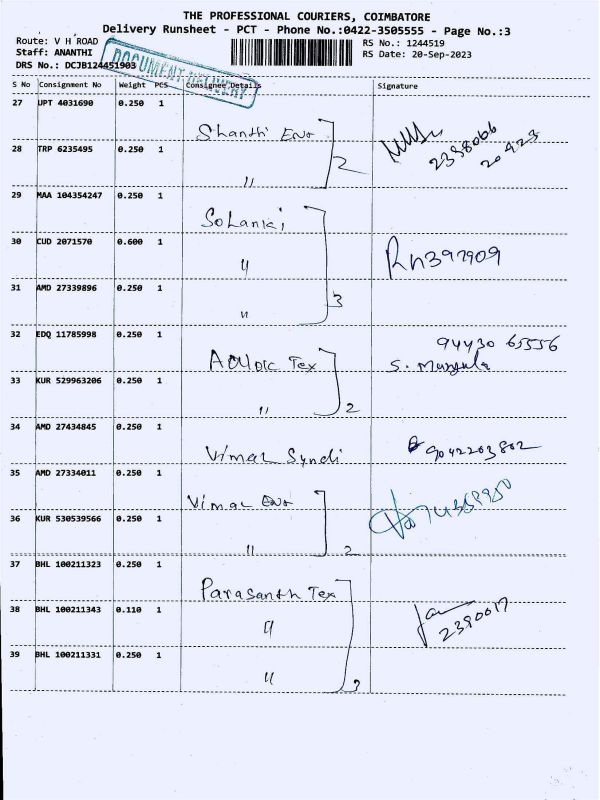 THE PROFESSIONAL COURIERS, COIMBATORE
Delivery Runsheet - PCT - Phone No.:0422-3505555 - Page No.:3
Route: V H ROAD
Staff: ANANTHI
DRS No.: DCJB124451903
RS No.: 1244519
RS Date: 20-Sep-2023
DOCUMENT DELIVERY
S No Consignment No Weight PCS Consignee Details Signature
27 UPT 4031690 0.250 1
Shanthi Ent
2
2398066
28 TRP 6235495 0.250 1
"
29 MAA 104354247 0.250 1
Solanki
30 CUD 2071570 0.600 1
"
Rn397909
31 AMD 27339896 0.250 1
"
3
32 EDQ 11785998 0.250 1
94430 65556
Tex
S.
33 KUR 529963206 0.250 1
"
2
34 AMD 27434845 0.250 1
Vimal Syndi
9042203802
35 AMD 27334011 0.250 1
Vimal Ent
36 KUR 530539566 0.250 1
"
2
37 BHL 100211323 0.250 1
Parasanth Tex
38 BHL 100211343 0.110 1
"
2390017
39 BHL 100211331 0.250 1
"